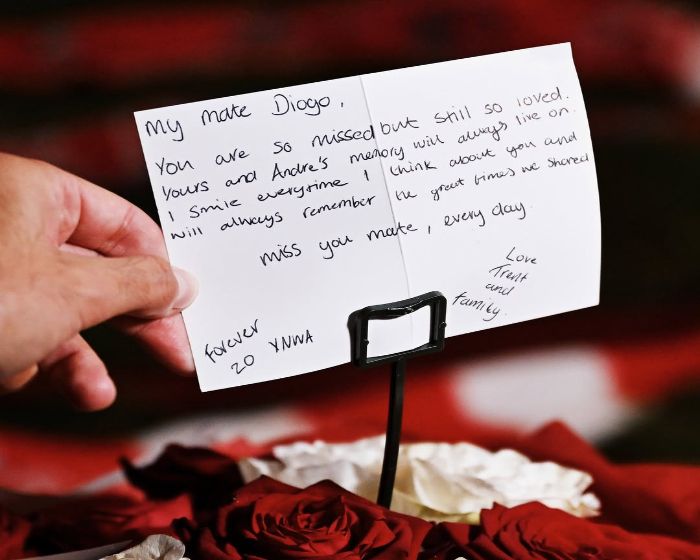 My mate Diogo,
You are so missed but still so loved.
Yours and Andre's memory will always live on.
I smile everytime I think about you and
will always remember the great times we shared
miss you mate, every day.
Love
Trent
and
family.
Forever
20 YNWA